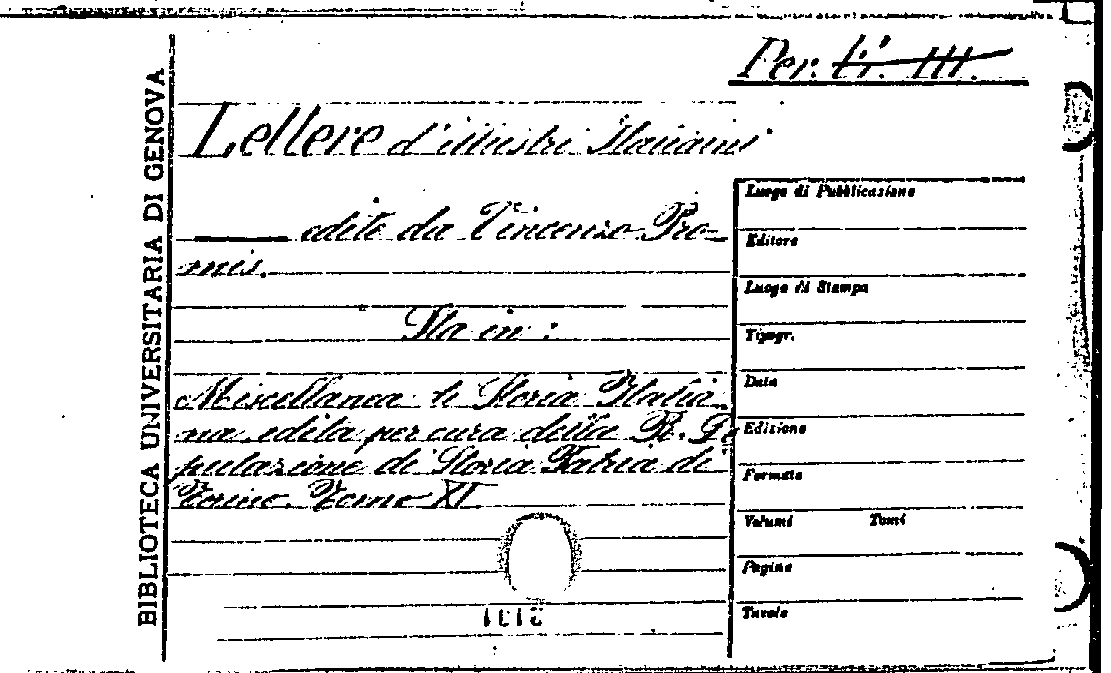 Per. li. III.
BIBLIOTECA UNIVERSITARIA DI GENOVA
Lettere d'illustri Italiani
edite da Vincenzo Pro-
mis.
Sta in :
Miscellanea di Storia Italia-
na edita per cura della R. De
putazione di Storia Patria di
Torino. Tomo XI
Luogo di Pubblicazione
Editore
Luogo di Stampa
Tipogr.
Data
Edizione
Formato
Volumi Tomi
Pagine
Tavole